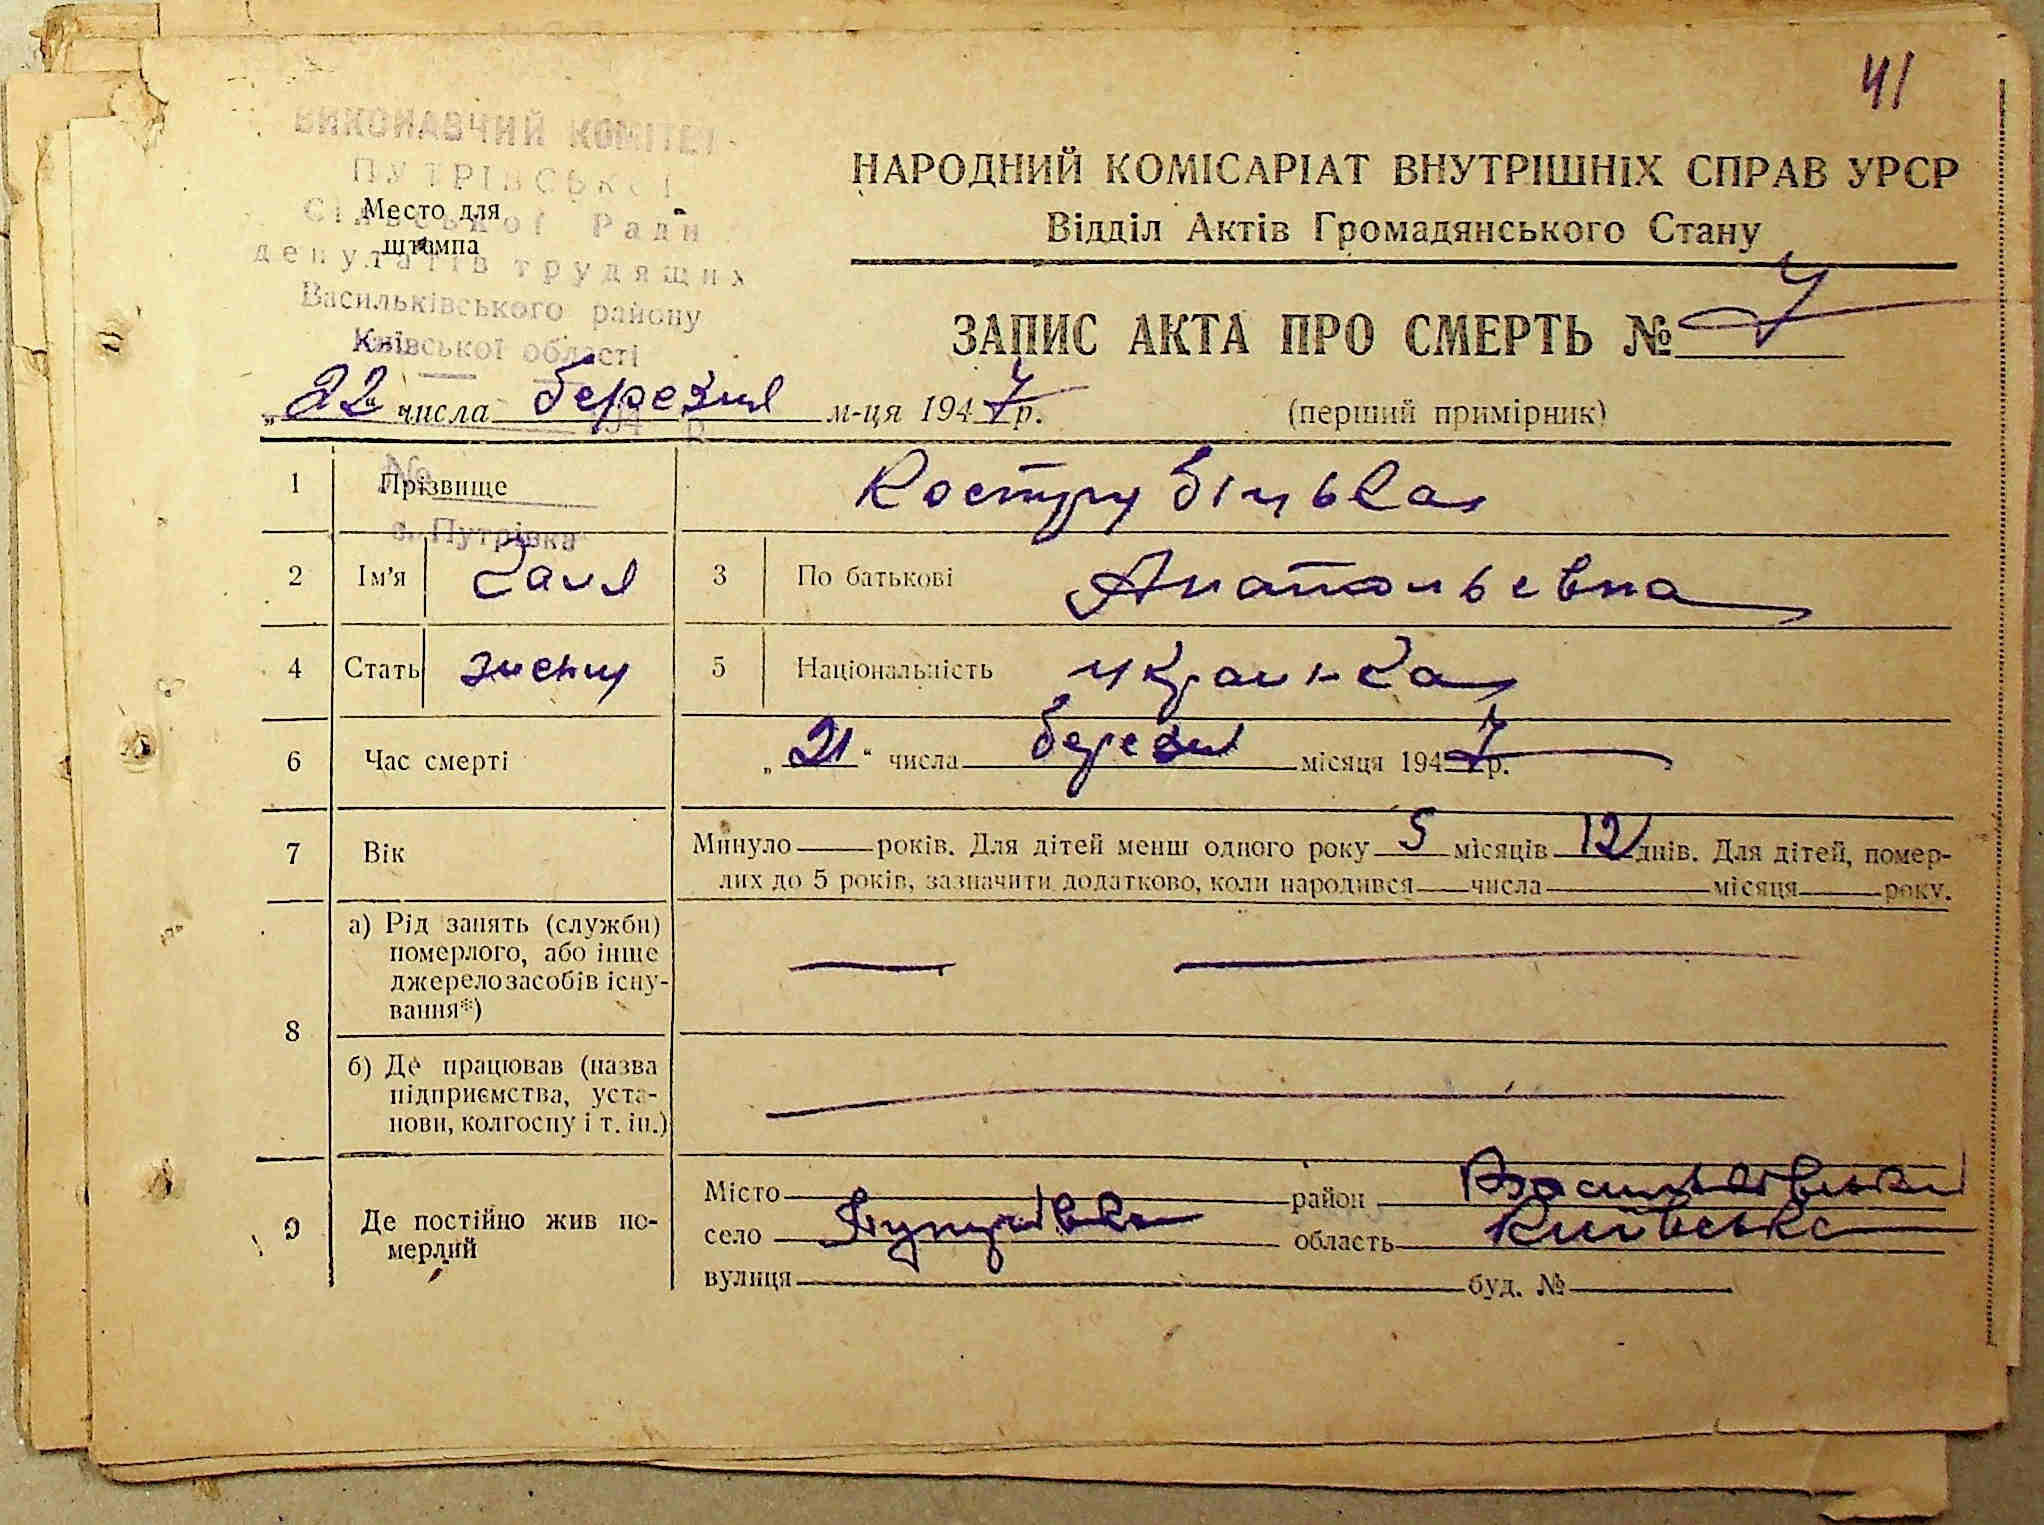 41
ВИКОНАВЧИЙ КОМІТЕТ
ПУТРІВСЬКОЇ
Сільської Ради
депутатів трудящих
Васильківського району
Київської області
Место для
штампа
НАРОДНИЙ КОМІСАРІАТ ВНУТРІШНІХ СПРАВ УРСР
Відділ Актів Громадянського Стану
ЗАПИС АКТА ПРО СМЕРТЬ № 7
„22“ числа березня м-ця 1947 р.
(перший примірник)
№
с. Путрівка
1 Прізвище
2 Ім'я Галя 3 По батькові Анатольевна
4 Стать женщ 5 Національність украинка
6 Час смерті „21“ числа березня місяця 1947 р.
7 Вік Минуло років. Для дітей менш одного року 5 місяців 12 днів. Для дітей, помер-
лих до 5 років, зазначити додатково, коли народився числа місяця року.
8 а) Рід занять (служби)
померлого, або інше
джерело засобів існу-
вання*)
б) Де працював (назва
підприємства, уста-
нови, колгоспу і т. ін.)
9 Де постійно жив по-
мерлий
Місто район Васильківськи
село Путрівка область Київська
вулиця буд. №